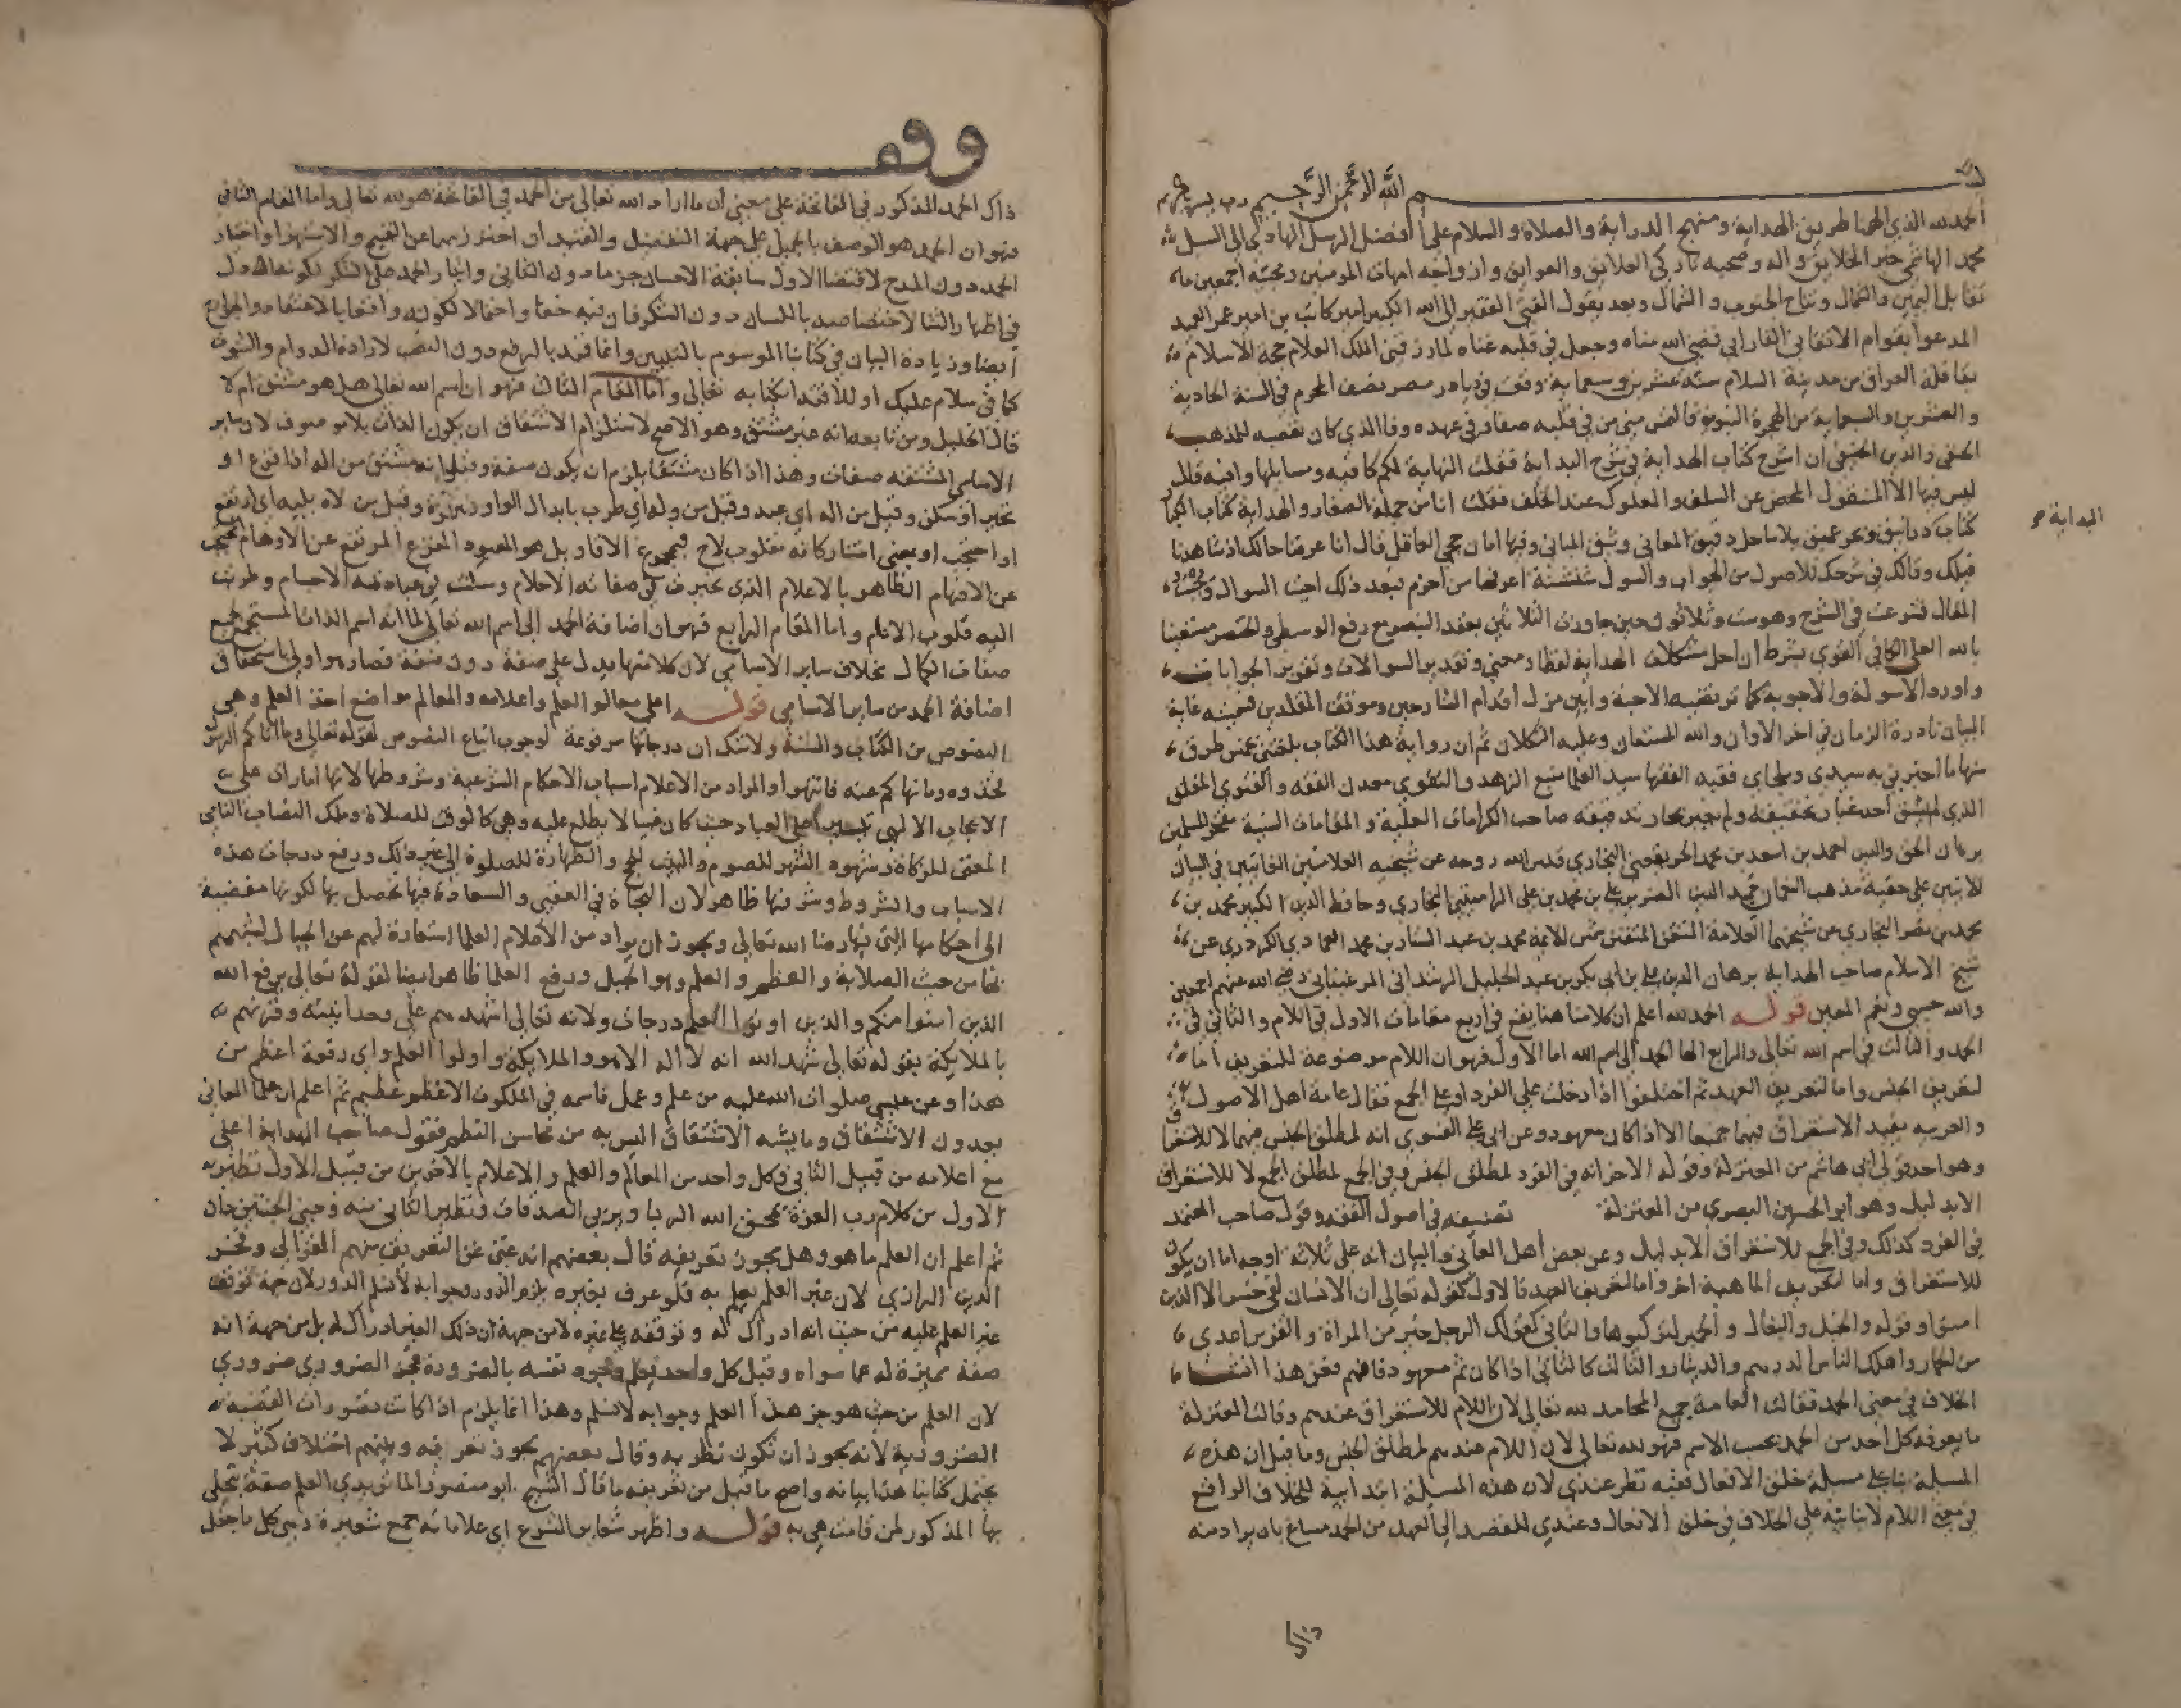 بسم الله الرحمن الرحيم رب يسر يا كريم
الحمد لله الذي الهمنا طريق الهداية ومنهج الدراية والصلاة والسلام على افضل الرسل الهادي الى السبل
محمد الهاشمي خير الخلايق واله وصحبه تاركي العلايق والعوايق وازواجه امهات المومنين ومحبيه اجمعين ما
تقابل اليمين والشمال وتناح الجنوب والشمال وبعد يقول الفقير الى الله الكبير امير كاتب بن امير عمر العميد
المدعو بقوام الاتقاني الفارابي قضى الله مناه وجعل في قلبه غناه لما رزقني الملك العلام حجة الاسلام
بقافلة العراق من مدينة السلام سنة عشرين وسبعماية وقفت في ديار مصر نصف المحرم في السنة الحادية
والعشرين والسبعماية من الهجرة النبوية فالتمس مني من في قلبه صفا وفي عهده وفا الذي كان تعصبه للمذهب
الحنفي والدين الحنيفي ان اشرح كتاب الهداية في شرح البداية فقلت النهاية لكم كافية ومسايلها وافية قال
ليس فيها الا المنقول المحض عن السلف والمعلوك عند الخلف فقلت انا من جملة الصغار والهداية كتاب الكبار
كتاب دراسق وبحر عميق بلا ساحل دقيق المعاني وثيق المباني وفيها امان حجى العاقل قال انا عرفنا حالك اذ شاهدنا
البداية صح
قيلك وقالك في شرحك للاصول من الجواب والسول شنشنة اعرفها من اخزم فبعد ذلك اجبت السوال
المقال فشرعت في الشرح وهو ست وثلاثون حين جاوزت الثلاثين بعقد البنصر مع رفع الوسطى والخنصر مستعينا
بالله العلي الكافي القوي بشرط ان احل مشكلات الهداية لفظا ومعنى وتقدير السوالات وتقرير الجوابات
واورد الاسولة والاجوبة كما ترتضيه الاحبة وابين مزل اقدام الشارحين وموقف المقلدين فسميته غاية
البيان نادرة الزمان في اخر الاوان والله المستعان وعليه التكلان ثم ان رواية هذا الكتاب بلغتني بخمس طرق
منها ما اخبرني به سيدي وملجاي فقيه الفقها سيد العلما منبع الزهد والتقوى معدن الفقه والفتوى المفلق
الذي لم يشق احد غبار تحقيقه ولم يجر بحار تدقيقه صاحب الكرامات العلية والمقامات السنية مفخر المسلمين
برهان الحق والدين احمد بن اسعد بن محمد الخريفعني البخاري قدس الله روحه عن شيخيه العلامتين الغايتين في البيان
الايتين على حقية مذهب النعمان حميد الدين الضرير علي بن محمد بن علي الرامشي البخاري وحافظ الدين الكبير محمد بن
محمد بن نصر البخاري عن شيخهما العلامة المتقن المتفنن شمس الايمة محمد بن عبد الستار بن محمد العمادي الكردري عن
شيخ الاسلام صاحب الهداية برهان الدين علي بن ابي بكر بن عبد الجليل الرشداني المرغيناني رضي الله عنهم اجمعين
والله حسبي ونعم المعين قوله الحمد لله اعلم ان كلامنا هنا يقع في اربع مقامات الاول في اللام والثاني في
الحمد والثالث في اسم الله تعالى والرابع اضافة الحمد الى اسم الله اما الاول فهو ان اللام موضوعة للتعريف اما
لتعريف الجنس واما لتعريف العهد ثم اختلفوا اذا دخلت على الفرد او على الجمع فقال عامة اهل الاصول
والعربية يفيد الاستغراق فيهما جميعا الا اذا كان معهودا وعن ابي علي الفسوي انه لمطلق الجنس فيهما لا للاستغراق
وهو احد قولي ابي هاشم من المعتزلة وقوله الاخر انه في الفرد لمطلق الجنس وفي الجمع لمطلق الجمع لا للاستغراق
الا بدليل وهو ابو الحسين البصري من المعتزلة تصنيفه في اصول الفقه وقول صاحب المعتمد
في الفرد كذلك وفي الجمع للاستغراق الا بدليل وعن بعض اهل المعاني والبيان انه على ثلاثة اوجه اما ان يكون
للاستغراق واما لتعريف الماهية اخر واما لتعريف العهد فالاول كقوله تعالى ان الانسان لفي خسر الا الذين
امنوا وقوله والخيل والبغال والحمير لتركبوها والثاني كقولك الرجل خير من المراة والفرس اعدى
من الحمار واهلك الناس الدرهم والدينار والثالث كالثاني اذا كان ثم معهود فافهم فعن هذا انشعب
الخلاف في معنى الحمد فقالت العامة جميع المحامد لله تعالى لان اللام للاستغراق عندهم وقالت المعتزلة
ما يعرفه كل احد من الحمد بحسب الاسم فهو لله تعالى لان اللام عندهم لمطلق الجنس وما قيل ان هذه
المسلة بناء على مسلة خلق الافعال ففيه نظر عندي لان هذه المسلة ابتدايية للخلاف الواقع
في معنى اللام لا بنايية على الخلاف في خلق الافعال وعندي للقصد الى العهد من الحمد مساغ بان يراد منه
ذاك
وقف
ذاك الحمد المذكور في الفاتحة على معنى ان ما اراد الله تعالى من الحمد في الفاتحة هو لله تعالى واما المقام الثاني
فهو ان الحمد هو الوصف بالجميل على جهة التفضيل والقيد ان احترز بهما عن القبيح والاستهزا واختار
الحمد دون المدح لاقتضا الاول سابقة الاحسان جزما دون الثاني واختار الحمد على الشكر لكونه ادل
في اظهار الثنا لاختصاصه باللسان دون الشكر فان فيه خفا واحتمالا لكونه واقعا بالاعتقاد والجوارح
ايضا وزيادة البيان في كتابنا الموسوم بالتبيين وانما قيد بالرفع دون النصب لارادة الدوام والثبوت
كما في سلام عليك او للاقتدا بكتابه تعالى واما المقام الثالث فهو ان اسم الله تعالى هل هو مشتق ام لا
قال الخليل ومن تابعه انه غير مشتق وهو الاصح لاستلزام الاشتقاق ان يكون الذات بلا موصوف لان ساير
الاسامي المشتقة صفات وهذا اذا كان مشتقا يلزم ان يكون صفة وقيل انه مشتق من اله اذا فزع او
تحير او سكن وقيل من اله اي عبد وقيل من وله اي طرب بابدال الواو همزة وقيل من لاه يليه اي ارتفع
او احتجب او بمعنى استنار كانه مقلوب لاح فمجموع الاقاويل هو المعبود المفزع المرتفع عن الاوهام المحتجب
عن الافهام الظاهر بالاعلام الذي تحيرت في صفاته الاحلام وسكنت في عبادته الاجسام وطربت
اليه قلوب الانام واما المقام الرابع فهو ان اضافة الحمد الى اسم الله تعالى لما انه اسم الذات المستجمع جميع
صفات الكمال بخلاف ساير الاسامي لان كلا منها يدل على صفة دون صفة فصار هو اولى باستحقاق
اضافة الحمد من ساير الاسامي قوله اعلى معالم العلم واعلامه والمعالم مواضع اخذ العلم وهي
النصوص من الكتاب والسنة ولا شك ان درجاتها مرفوعة لوجوب اتباع النصوص لقوله تعالى وما اتاكم الرسول
فخذوه وما نهاكم عنه فانتهوا والمراد من الاعلام اسباب الاحكام الشرعية وشروطها لانها امارات على
الايجاب الالهي تيسيرا على العباد حيث كان غيبا لا يطلع عليه وهي كالوقت للصلاة وملك النصاب النامي
المغني للزكاة وشهود الشهر للصوم والبيت للحج والطهارة للصلوة الى غير ذلك ورفع درجات هذه
الاسباب والشروط وشرفها ظاهر لان النجاة في العقبى والسعادة فيها تحصل بها لكونها مفضية
الى احكامها التي فيها رضا الله تعالى ويجوز ان يراد من الاعلام العلما استعارة لهم عن الجبال لشبههم
بها من حيث الصلابة والعظم والعلم هو الجبل ورفع العلما ظاهر ايضا لقوله تعالى يرفع الله
الذين امنوا منكم والذين اوتوا العلم درجات ولانه تعالى اشهدهم على وحدانيته وقرنهم
بالملايكة بقوله تعالى شهد الله انه لا اله الا هو والملايكة واولوا العلم واي رفعة اعظم من
هذا وعن عيسى صلوات الله عليه من علم وعمل فاسمه في الملكوت الاعظم عظيم ثم اعلم ان علما المعاني
يعدون الاشتقاق وما يشبه الاشتقاق اليس به من محاسن النظم فقول صاحب الهداية اعلى
مع اعلامه من قبيل الثاني وكل واحد من المعالم والعلم والاعلام بالاخرين من قبيل الاول نظيره
الاول من كلام رب العزة يمحق الله الربا ويربي الصدقات ونظير الثاني منه وجنى الجنتين دان
ثم اعلم ان العلم ما هو وهل يجوز تعريفه قال بعضهم انه غني عن التعريف منهم الغزالي وفخر
الدين الرازي لان غير العلم يعلم به فلو عرف بغيره يلزم الدور وجوابه لا نسلم الدور لان جهة توقف
غير العلم عليه من حيث انه ادراك له وتوقفه على غيره لا من جهة ان ذلك الغير ادراك له بل من جهة انه
صفة مميزة له عما سواه وقيل كل واحد يعلم وجود نفسه بالضرورة فجزء الضروري ضروري
لان العلم من حيث هو جزء هذا العلم وجوابه لا نسلم وهذا انما يلزم اذا كانت تصورات القضية
الضرورية لانه يجوز ان تكون نظرية وقال بعضهم يجوز تعريفه وبينهم اختلاف كثير لا
يحتمل كتابنا هذا بيانه واصح ما قيل من تعريفه ما قال الشيخ ابو منصور الماتريدي العلم صفة يتجلى
بها المذكور لمن قامت هي به قوله واظهر شعاير الشرع اي علاماته جمع شعيرة وهي كل ما جعل